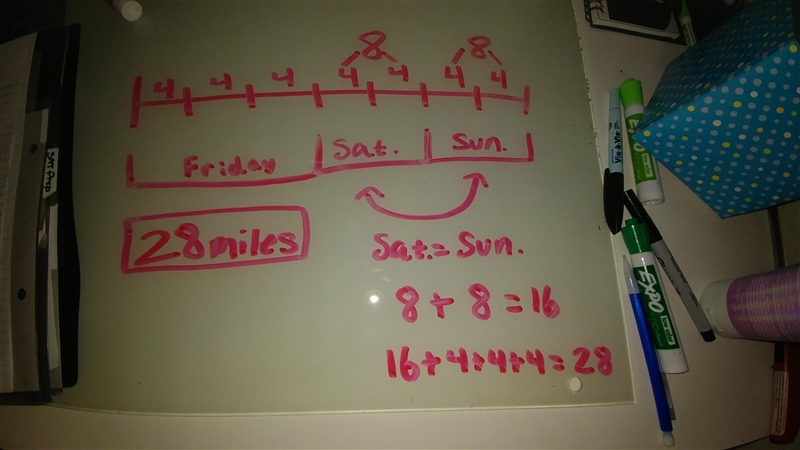 8 8
4 4 4 4 4 4 4
Friday Sat. Sun.
28 miles
Sat. = Sun.
8 + 8 = 16
16 + 4 + 4 + 4 = 28
SAT Prep
EXPO